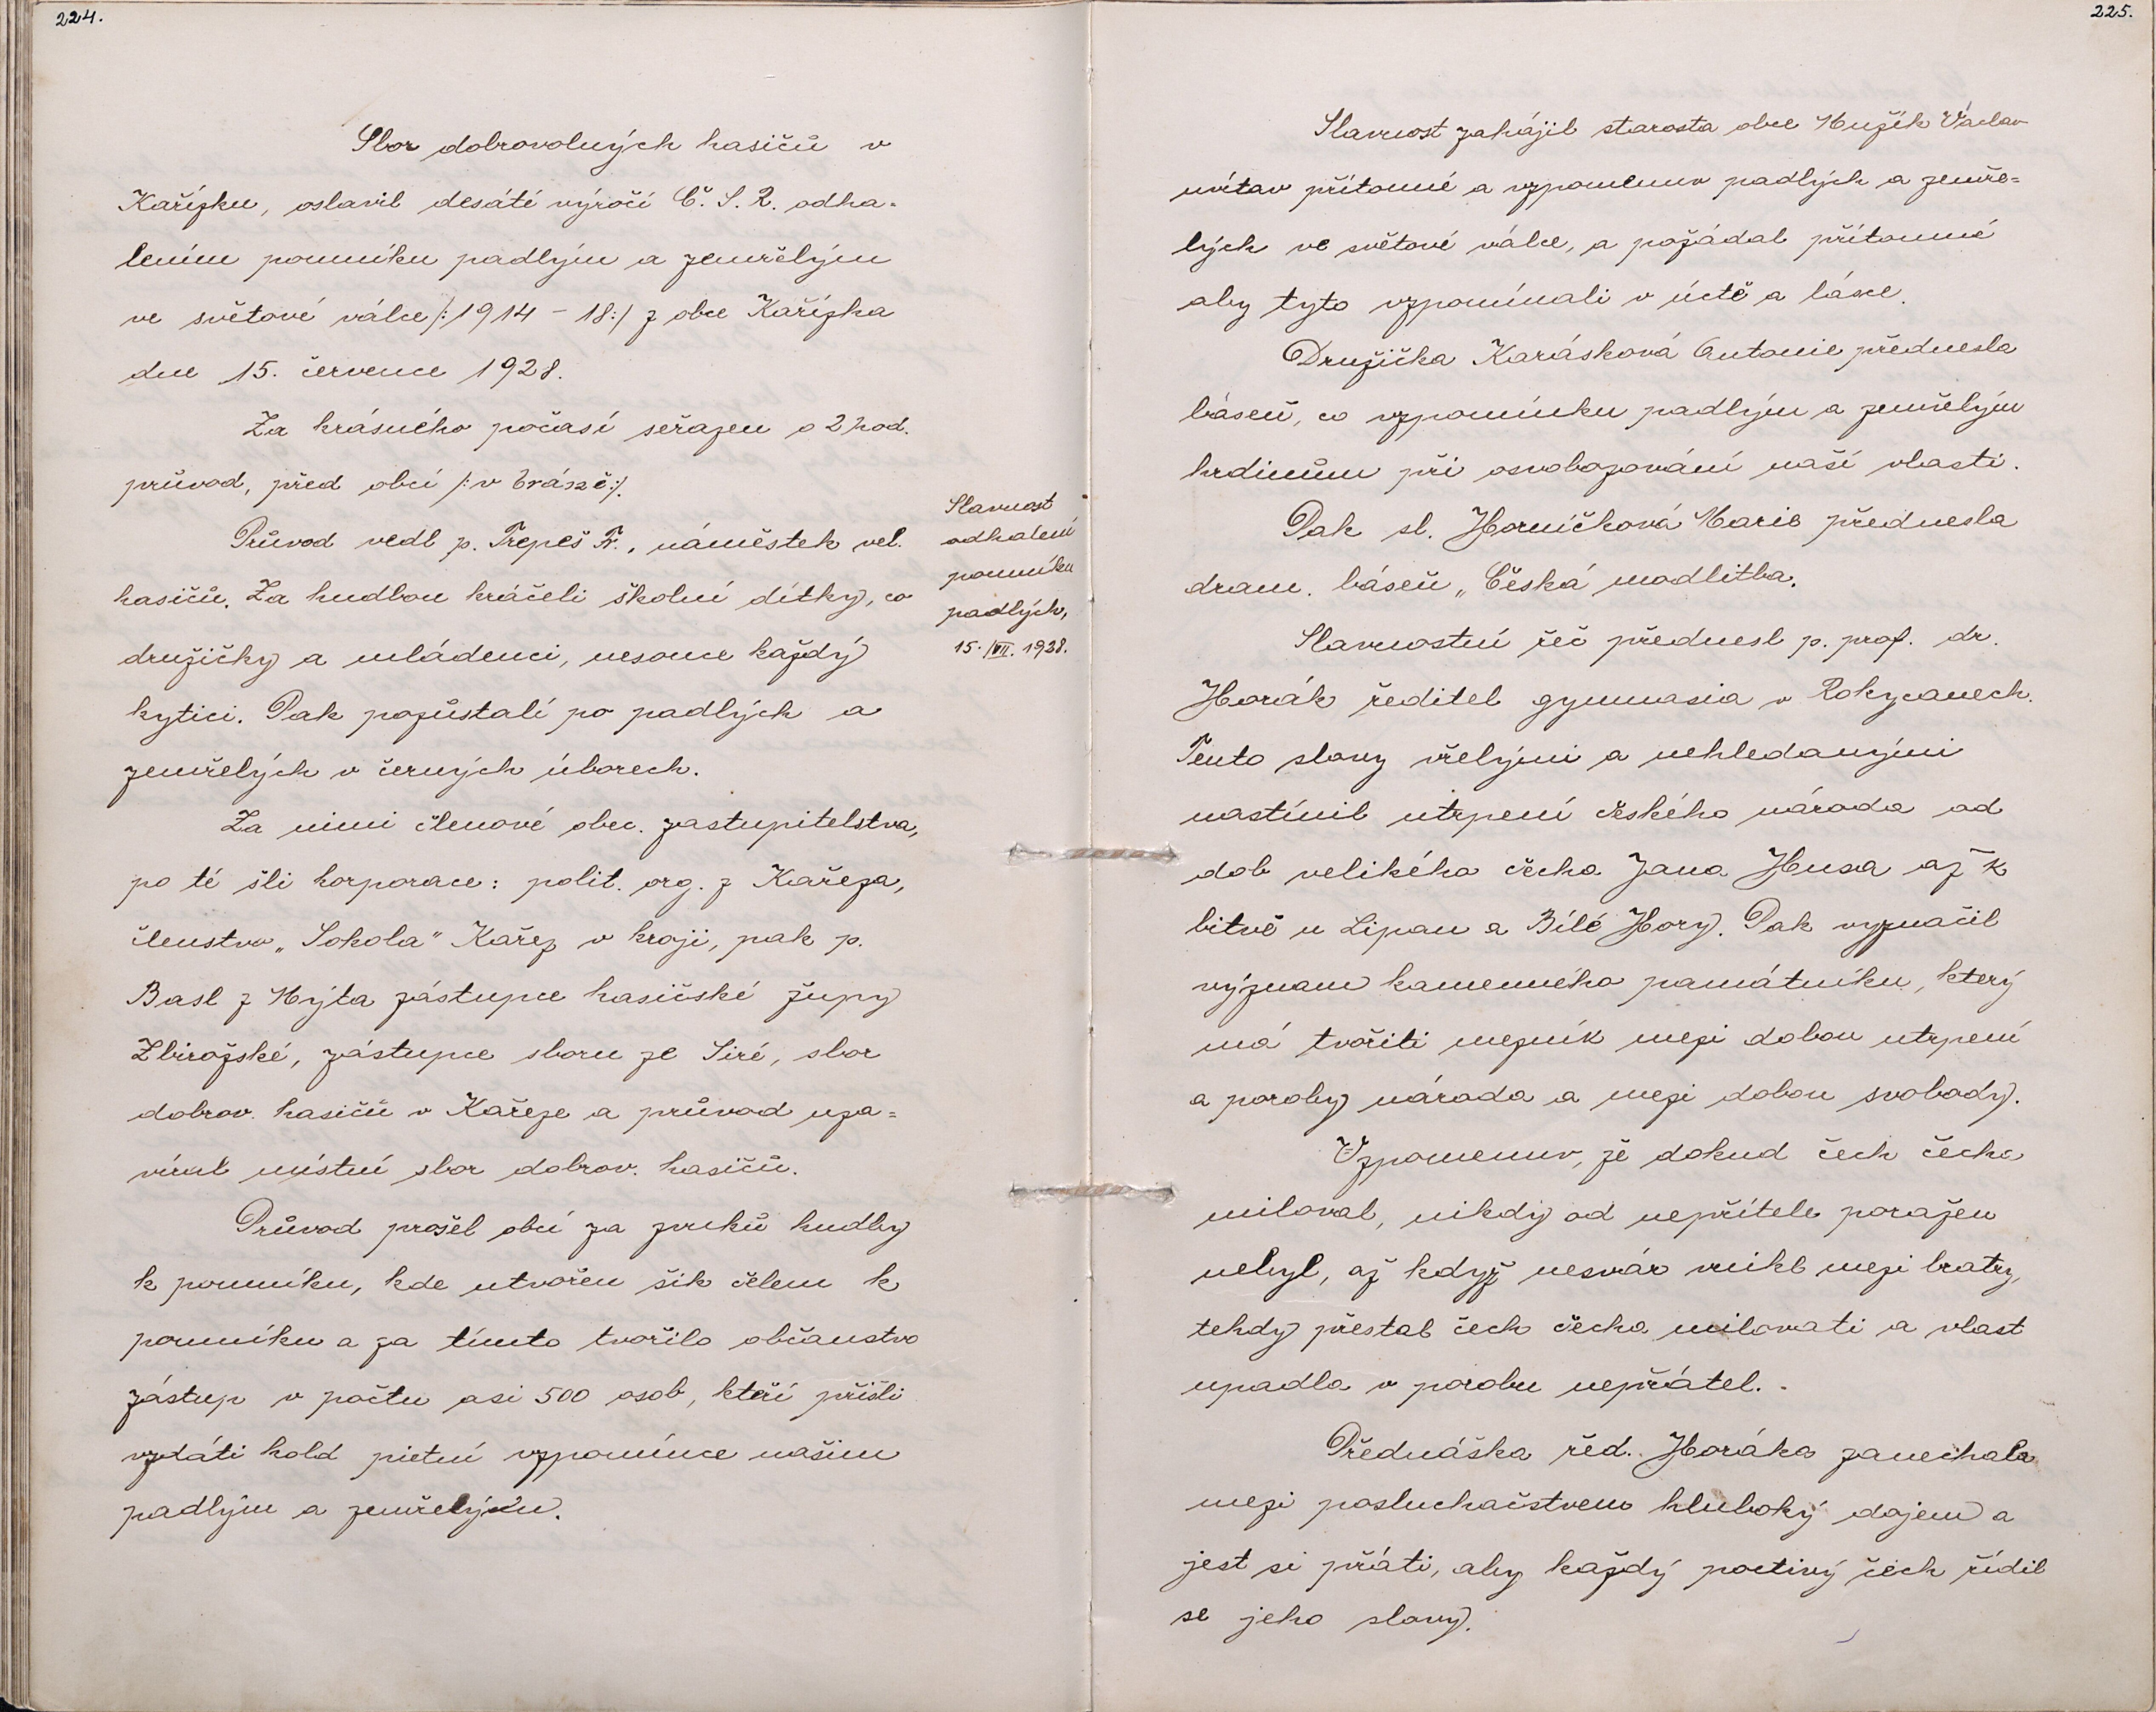 224.
Sbor dobrovolných hasičů v
Kařízku, oslavil desáté výročí Č. S. R. odha-
lením pomníku padlým a zemřelým
ve světové válce /:1914 - 18:/ z obce Kařízka
dne 15. července 1928.
Za krásného počasí seřazen o 2 hod.
průvod, před obcí /: v Brászě:/.
Průvod vedl p. Trepeš Fr., náměstek vel.
hasičů. Za hudbou kráčeli školní dítky, co
družičky a mládenci, nesouce každý
kytici. Pak pozůstalí po padlých a
zemřelých v černých úborech.
Za nimi členové obec. zastupitelstva,
po té šli korporace: polit. org. z Kařeza,
členstvo „Sokola" Kařez v kroji, pak p.
Basl z Mýta zástupce hasičské župy
Zbirožské, zástupce sboru ze Siré, sbor
dobrov. hasičů v Kařeze a průvod uza=
víral místní sbor dobrov. hasičů.
Průvod prošel obcí za zvuků hudby
k pomníku, kde utvořen šik čelem k
pomníku a za tímto tvořilo občanstvo
zástup v počtu asi 500 osob, kteří přišli
vzdáti hold pietní vzpomínce našim
padlým a zemřelým.
Slavnost
odhalení
pomníku
padlých,
15. VII. 1928.
225.
Slavnost zahájil starosta obce Mužík Václav
uvítav přítomné a vzpomenuv padlých a zemře=
lých ve světové válce, a požádal přítomné
aby tyto vzpomínali v úctě a lásce.
Družička Karásková Antonie přednesla
báseň, co vzpomínku padlým a zemřelým
hrdinům při osvobozování naší vlasti.
Pak sl. Horničková Marie přednesla
dram. báseň „Česká modlitba.
Slavnostní řeč přednesl p. prof. dr.
Horák ředitel gymnasia v Rokycanech.
Tento slovy vřelými a nehledanými
nastínil utrpení českého národa od
dob velikého čecha Jana Husa až k
bitvě u Lipan a Bílé Hory. Pak vyznačil
význam kamenného památníku, který
má tvořiti mezník mezi dobou utrpení
a poroby národa a mezi dobou svobody.
Vzpomenuv, že dokud čech čecha
miloval, nikdy od nepřítele poražen
nebyl, až když nesvár vnikl mezi bratry,
tehdy přestal čech čecha milovati a vlast
upadla v porobu nepřátel.
Přednáška řed. Horáka zanechala
mezi posluchačstvem hluboký dojem a
jest si přáti, aby každý poctivý čech řídil
se jeho slovy.